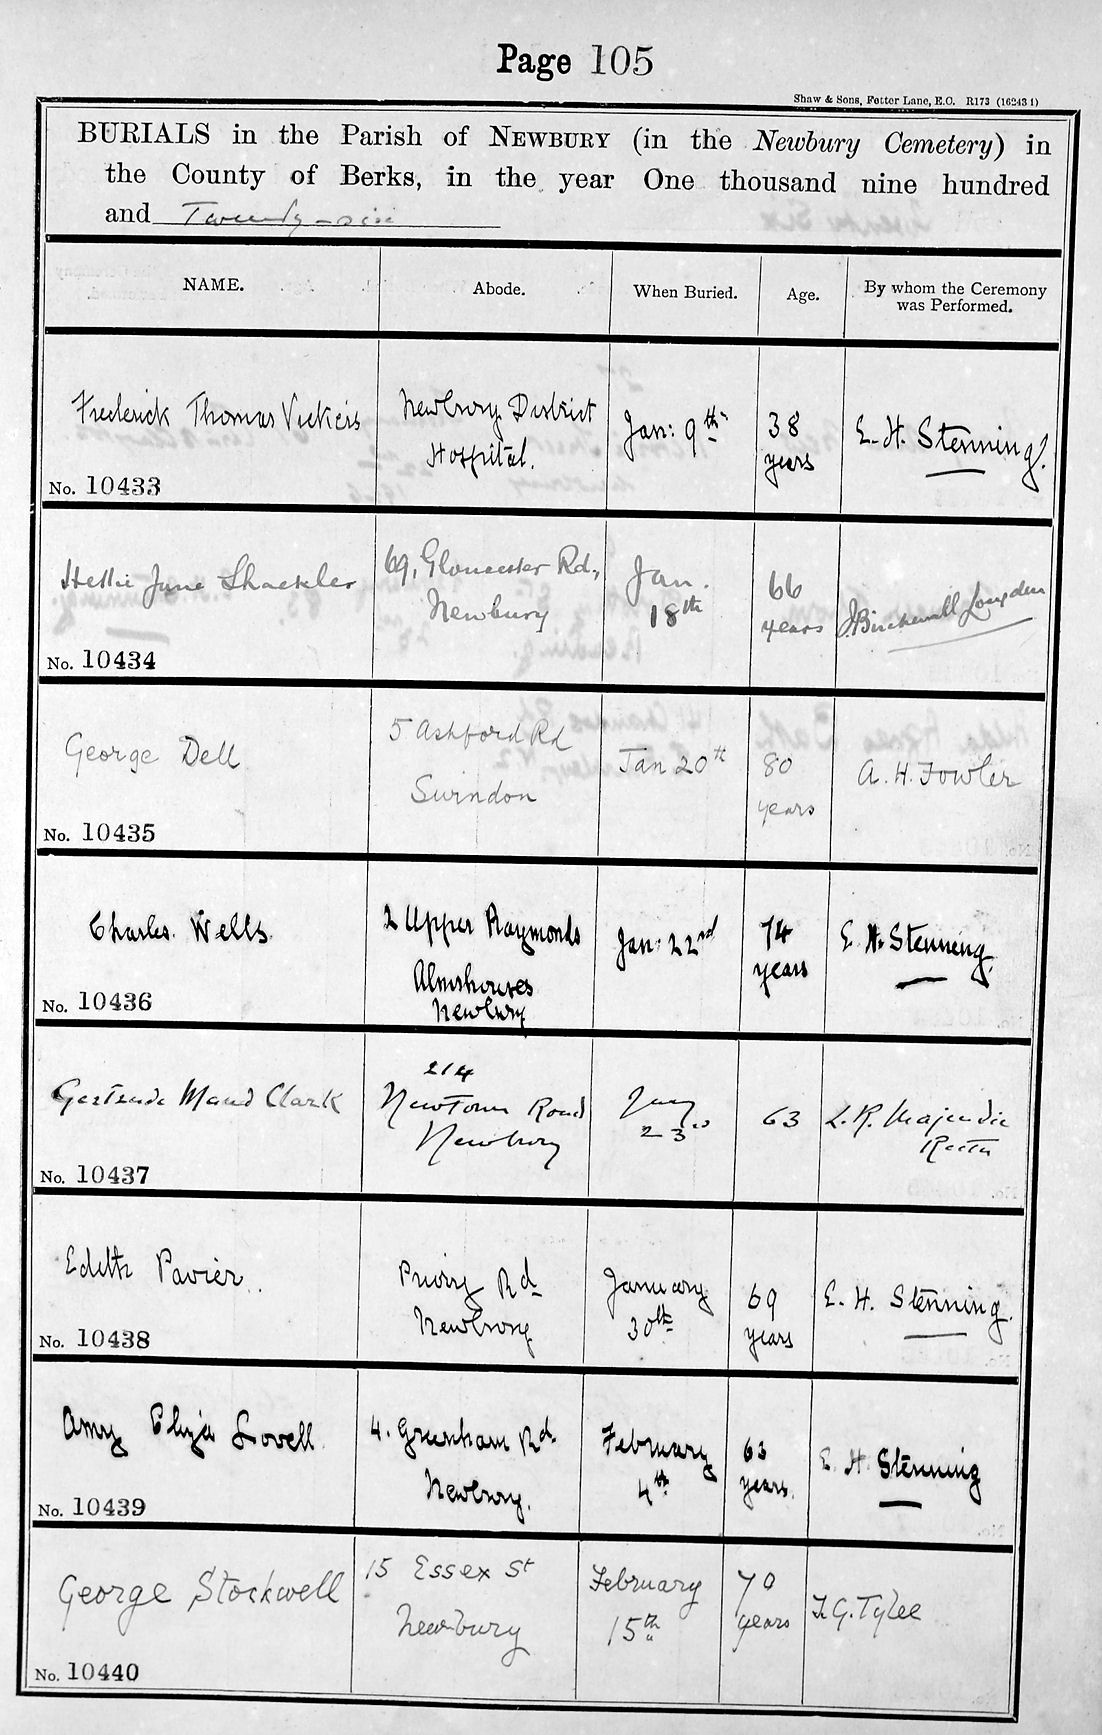 Page 105
Shaw & Sons, Fetter Lane, E.C. R173 (16243 1)
BURIALS in the Parish of NEWBURY (in the Newbury Cemetery) in
the County of Berks, in the year One thousand nine hundred
and Twenty-six
NAME. Abode. When Buried. Age. By whom the Ceremony
was Performed.
Frederick Thomas Vickers Newbury District Jan: 9th 38 E. H. Stenning.
Hospital. years
No. 10433
Hettie Jane Shackler 69, Gloucester Rd., Jan. 66 J. Birchenall Longden
Newbury 18th years
No. 10434
George Dell 5 Ashford Rd Jan 20th 80 A. H. Fowler
Swindon years
No. 10435
Charles Wells 2 Upper Raymonds Jan: 22nd 74 E. H. Stenning.
Almshouses years
Newbury
No. 10436
214
Gertrude Maud Clark Newtown Road Jany 63 L. R. Majendie
Newbury 23 Rector
No. 10437
Edith Pavier. Priory Rd January 69 E. H. Stenning.
Newbury 30th years
No. 10438
Amy Eliza Lovell 4. Greenham Rd. February 63 E. H. Stenning
Newbury. 4th years.
No. 10439
George Stockwell 15 Essex St February 70 F. G. Tylee
Newbury 15th years
No. 10440